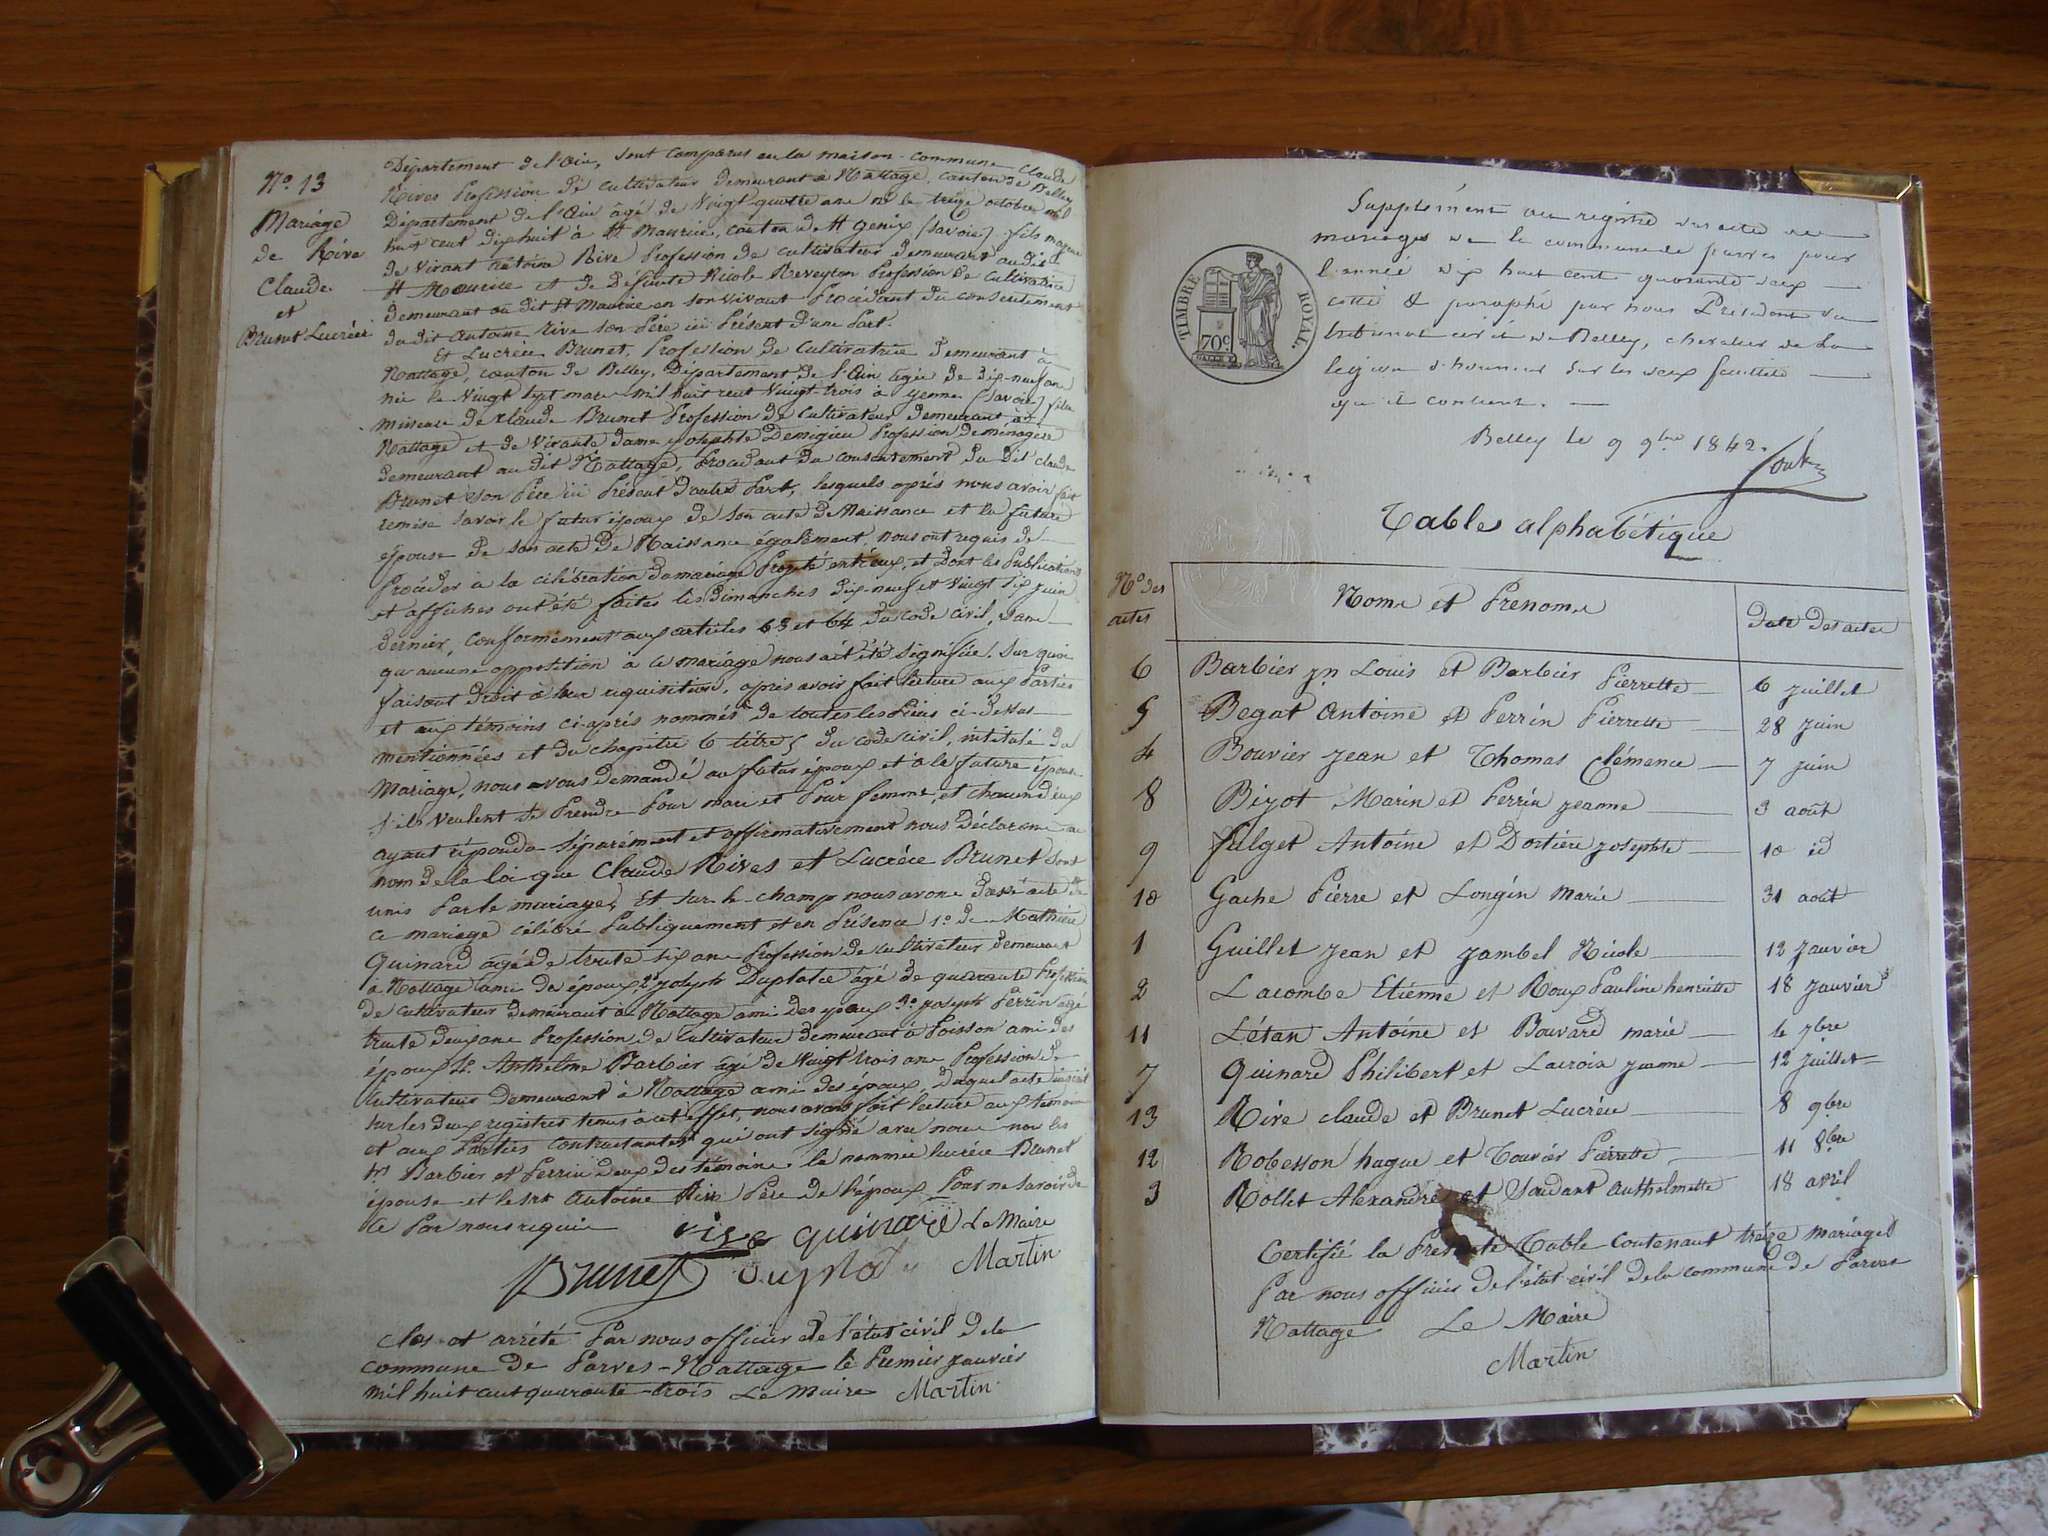 N.o 13
Mariage
de Rive
Claude
et
Brunet Lucrèce
Département de l'Ain, sont comparus en la maison commune Claude
Rives Profession de cultivateur demeurant à Nattage, canton de Belley
Département de l'Ain âgé de Vingt quatre ans né le treize octobre mil
huit cent dix huit à St Maurice, canton de St genix (Savoie) fils majeur
de vivant Antoine Rive Profession de cultivateur demeurant au dit
St Maurice et de Défunte Nicole Reveyron Profession de Cultivatrice
demeurant au dit St Maurice en son vivant Procédant du consentement
du dit Antoine Rive son Père ici Présent d'une Part.
Et Lucrèce Brunet, Profession de Cultivatrice demeurant à
Nattage, canton de Belley, Département de l'Ain âgée de dix-neuf ans
née le Vingt sept mars mil huit cent Vingt-trois à yenne (Savoie) fille
mineure de claude Brunet Profession de Cultivateur demeurant à
Nattage et de Vivante dame josephte Demigieu Profession de ménagère
demeurant au dit Nattage, Procédant du consentement du Dit claude
Brunet son Père ici Présent d'autre Part, lesquels après nous avoir fait
remise savoir le futur époux de son acte de Naissance et la future
épouse de son acte de Naissance également, nous ont requis de
Procéder à la célébration du mariage Projeté entr'eux, et dont les Publications
et affiches ont été faites les Dimanches dix-neuf et vingt six juin
dernier, conformément aux articles 63 et 64 du code civil, sans
qu'aucune opposition à ce mariage nous ait été signifiée. Sur quoi
faisant droit à leur requisition, après avoir fait lecture aux Parties
et aux témoins ci-après nommés de toutes les Pièces ci-dessus
mentionnées et du chapitre 6 titre 5 du code civil, intitulé du
Mariage, nous avons demandé au futur époux et à la future épouse
s'ils veulent se Prendre Pour mari et Pour femme, et chacun d'eux
ayant répondu séparément et affirmativement nous déclarons au
nom de la loi que Claude Rives et Lucrèce Brunet sont
unis Par le mariage, Et sur-le-champ nous avons dressé acte de
ce mariage célébré Publiquement et en Présence 1.o de Mathieu
Quinard âgé de trente six ans Profession de cultivateur demeurant
à Nattage ami des époux, 2.o joseph Duplatre âgé de quarante Profession
de cultivateur demeurant à Nattage ami des époux 3.o joseph Perrin âgé
trente deux ans Profession de Cultivateur demeurant à Poisson ami des
époux 4.o Anthelme Barbier âgé de Vingt trois ans Profession de
cultivateur demeurant à Nattage ami des époux, Duquel acte inscrit
sur les deux registres tenus à cet effet, nous avons fait lecture aux témoins
et aux Parties contractantes qui ont signé avec nous non les
Srs Barbier et Perrin deux des témoins. la nommée lucrèce Brunet
épouse et le sr Antoine Rive Père de l'époux Pour ne savoir de
ce Par nous requis
rive quinard Le Maire
Brunet Duplat Martin
clos et arrêté Par nous officier de l'état civil de la
commune de Parves-Nattage le Premier janvier
mil huit cent quarante-trois Le Maire Martin
Supplément au registre des actes de
mariages de la commune de parves pour
l'année dix huit cent quarante deux
cotté & paraphé par nous Président du
tribunal civil de Belley, chevalier de la
legion d'honneur sur les deux feuillets
qu'il contient.
Belley le 9 9bre 1842.
TIMBRE ROYAL.
70c
Table alphabétique
No des actes
Noms et Prenoms
Date des actes
6 Barbier jn Louis et Barbier Pierrette 6 juillet
5 Begat Antoine et Perrin Pierrette 28 juin
4 Bouvier jean et Thomas Clémence 7 juin
8 Bizot Marin et Perrin jeanne 3 août
9 fulget Antoine et Dortière josephte 10 id
10 Gache Pierre et Longin Marie 31 août
1 Guillet jean et jambel Nicole 12 janvier
2 Lacombe Etienne et Roux Pauline henriette 18 janvier
11 Létan Antoine et Bouvard marie le 7bre
7 Quinard Philibert et Lacroix jeanne 12 juillet
13 Rive claude et Brunet Lucrèce 8 9bre
12 Robesson hugue et Touvier Pierrette 11 8bre
3 Rollet Alexandre et Soudant anthelmette 18 avril
Certifié la Présente Table contenant treize mariages
Par nous officier de l'état civil de la commune de Parves
Nattage Le Maire
Martin